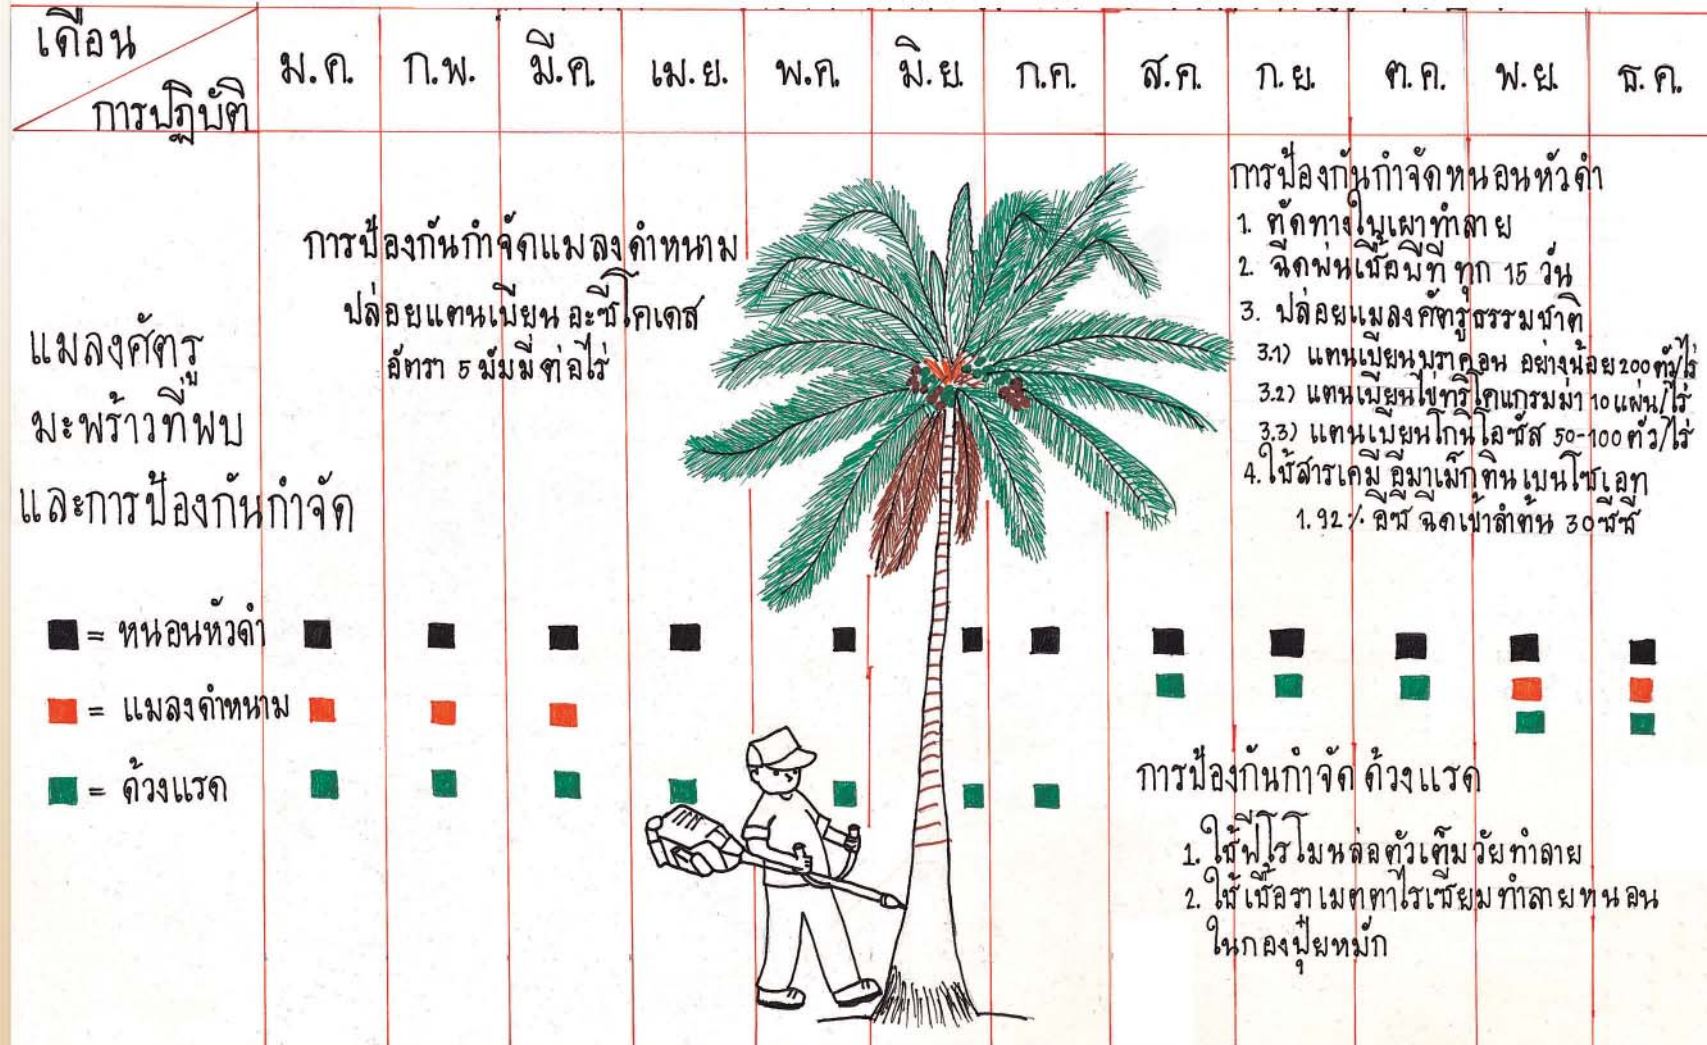 เดือน
การปฏิบัติ
ม.ค.
ก.พ.
มี.ค.
เม.ย.
พ.ค
มิ.ย.
ก.ค.
ส.ค.
ก.ย.
ต.ค.
พ.ย.
ธ.ค.
แมลงศัตรู
มะพร้าวที่พบ
และการป้องกันกำจัด
การป้องกันกำจัดแมลงดำหนาม
ปล่อยแตนเบียน อะซีโคเดส
อัตรา 5 มัมมี่ ต่อไร่
การป้องกันกำจัดหนอนหัวดำ
1. ตัดทางใบเผาทำลาย
2. ฉีดพ่นเชื้อบีที ทุก 15 วัน
3. ปล่อยแมลงศัตรูธรรมชาติ
3.1) แตนเบียนบราคอน อย่างน้อย 200 ตัว/ไร่
3.2) แตนเบียนไข่ทริโคแกรมม่า 10 แผ่น/ไร่
3.3) แตนเบียนโกนิโอซัส 50-100 ตัว/ไร่
4. ใช้สารเคมี อีมาเม็กติน เบนโซเอท
1.92% อีซี ฉีดเข้าลำต้น 30 ซีซี
= หนอนหัวดำ
= แมลงดำหนาม
= ด้วงแรด
การป้องกันกำจัด ด้วงแรด
1. ใช้ฟีโรโมนล่อตัวเต็มวัยทำลาย
2. ใช้เชื้อราเมตตาไรเซียมทำลายหนอน
ในกองปุ๋ยหมัก